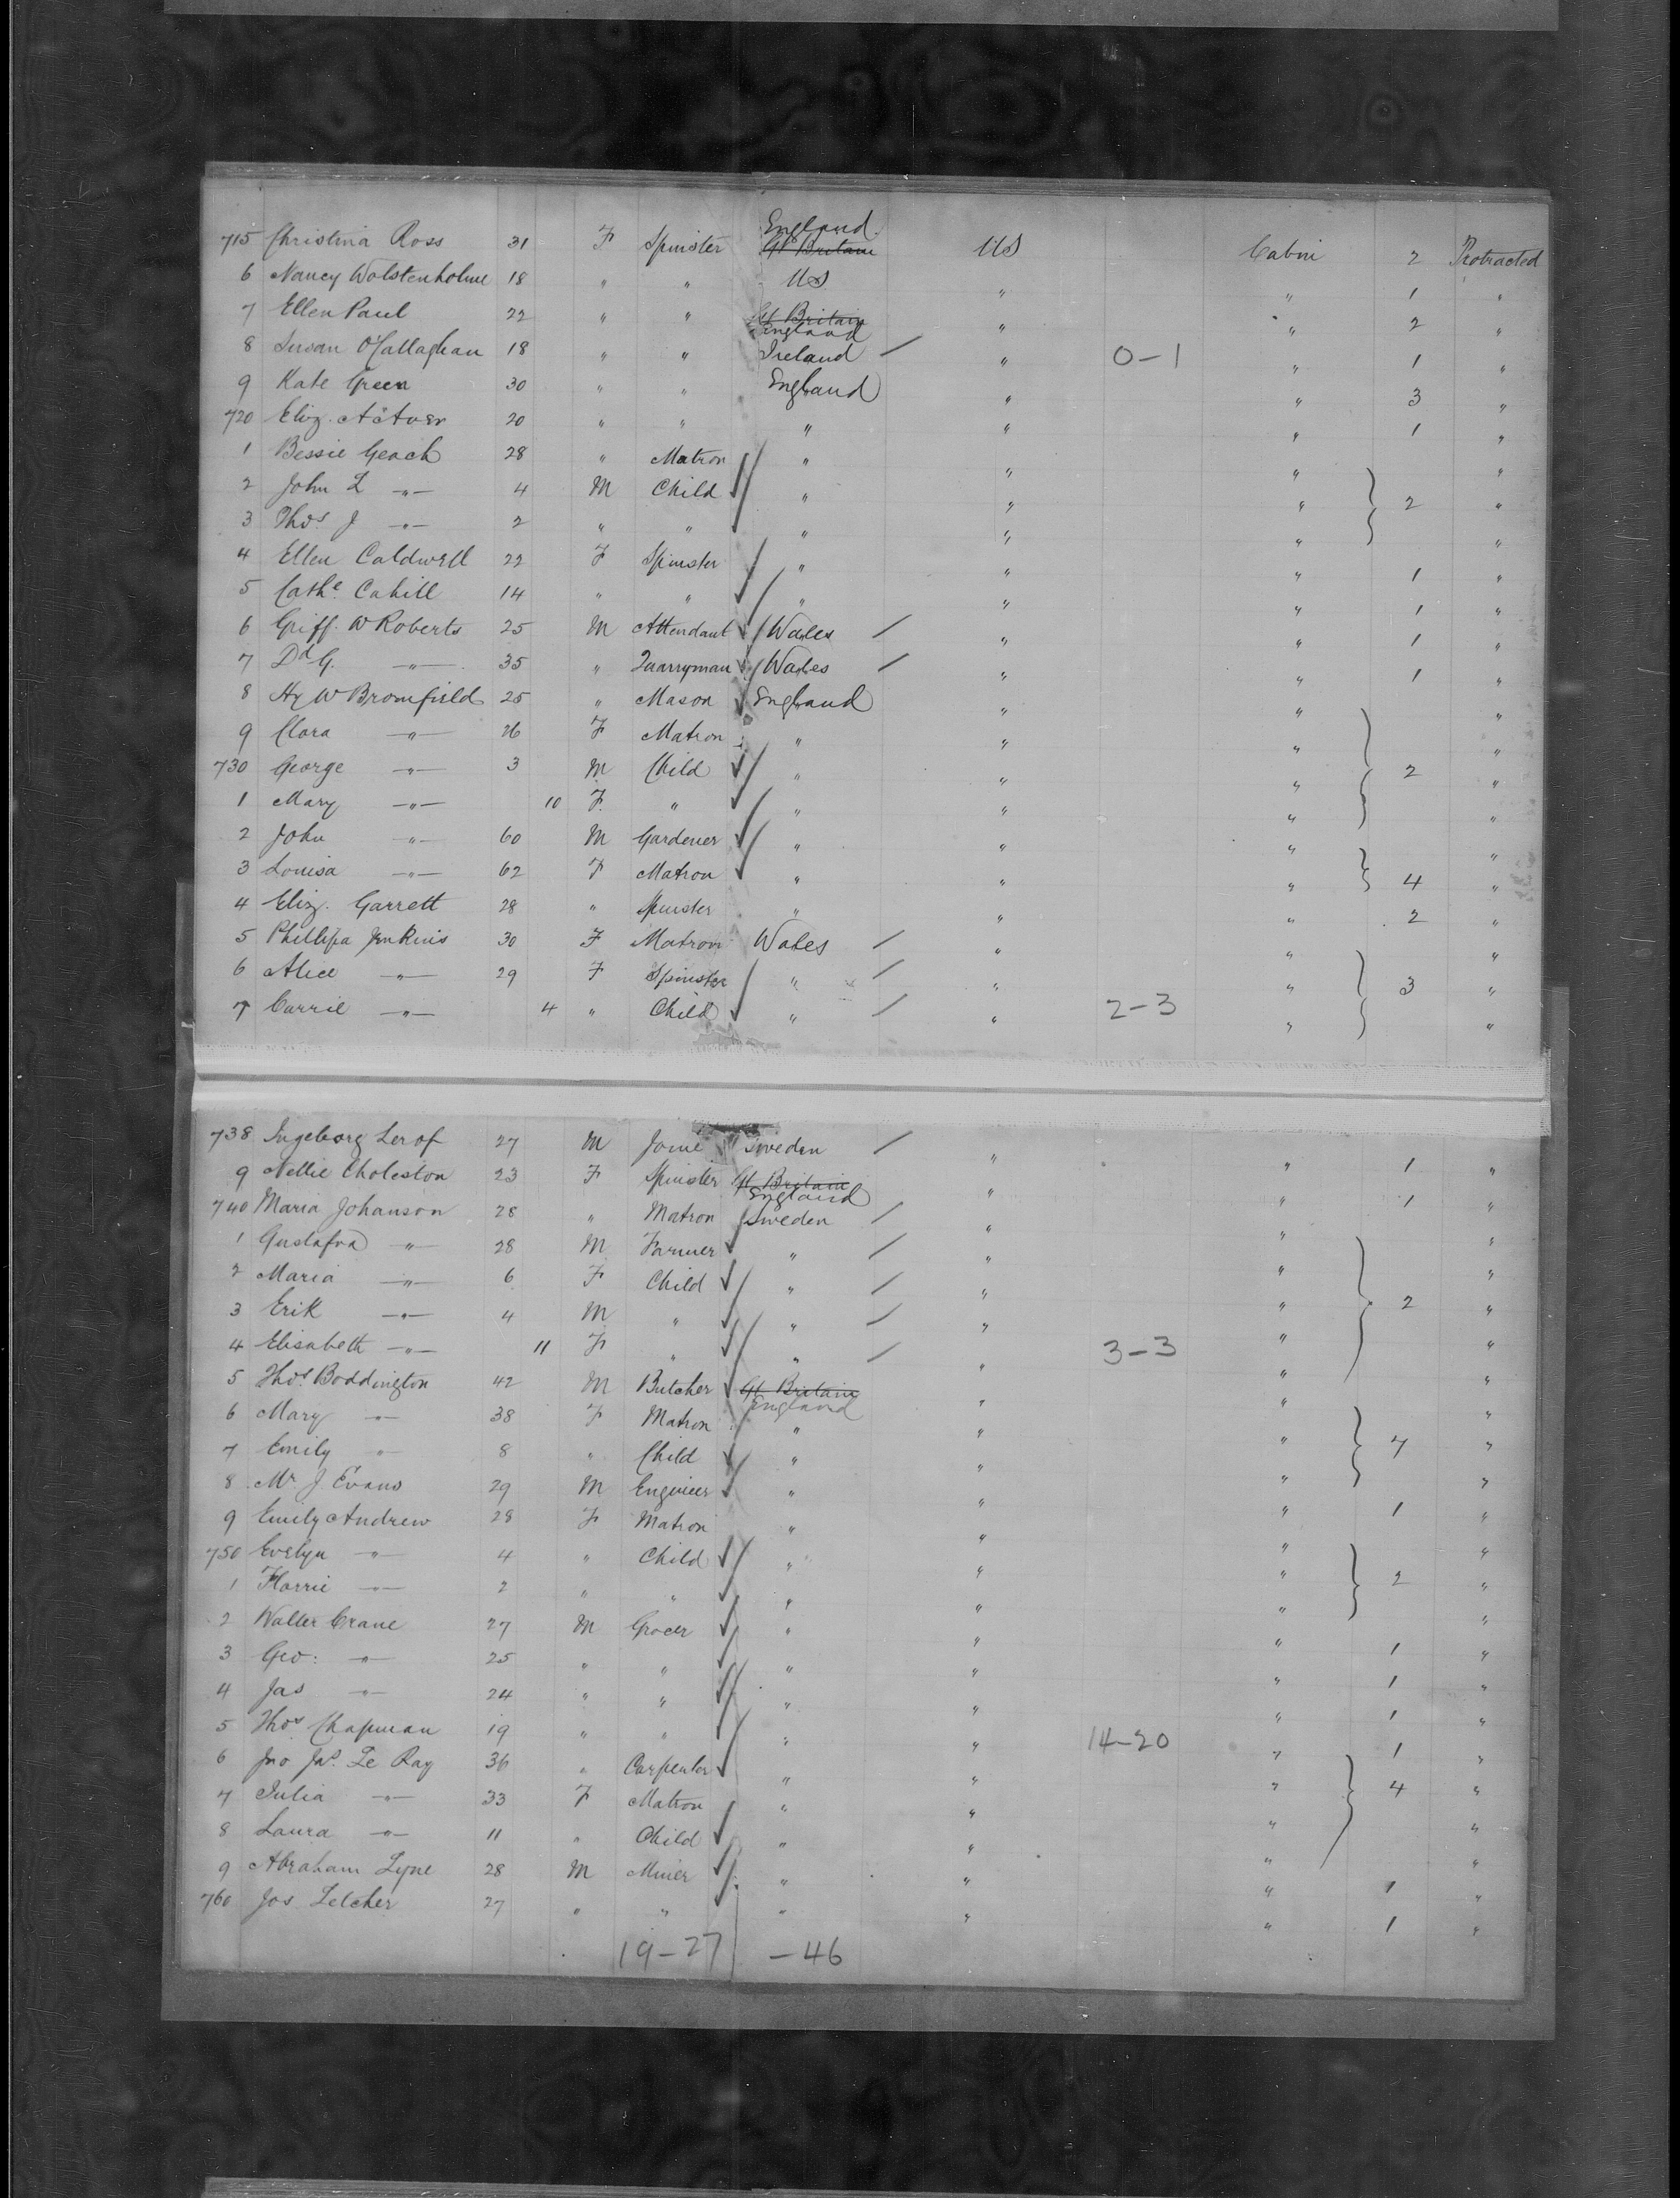 715 Christina Ross 31 F Spinster England Gt Britain US Cabin 2 Protracted
6 Nancy Wolstenholme 18 " " US " " 1 "
7 Ellen Paul 22 " " Gt Britain England " " 2 "
8 Susan O'Callaghan 18 " " Ireland / " 0-1 " 1 "
9 Kate Green 30 " " England " " 3 "
720 Eliz. 20 " " " " " 1 "
1 Bessie Geach 28 " Matron " " " "
2 John L -"- 4 M Child " " " 2 "
3 Thos J -"- 2 " " " " " "
4 Ellen Caldwell 22 F Spinster " " " 1 "
5 Cathe Cahill 14 " " " " " 1 "
6 Griff. W Roberts 25 M Attendant Wales / " " 1 "
7 Dd G. -"- 35 " Quarryman Wales / " " 1 "
8 Hy W Bromfield 25 " Mason England " " "
9 Clara -"- 26 F Matron " " " "
730 George -"- 3 M Child " " " 2 "
1 Mary -"- 10 F " " " " "
2 John -"- 60 M Gardener " " " "
3 Louisa -"- 62 F Matron " " " 4 "
4 Eliz. Garrett 28 " Spinster " " " 2 "
5 Phillipa Jenkins 30 F Matron Wales / " " "
6 Alice -"- 29 F Spinster " / " " 3 "
7 Carrie -"- 4 " Child " / " 2-3 " "
738 Ingeborg Lerof 27 M Sweden / " " 1 "
9 Nellie Choleston 23 F Spinster Gt Britain England " " 1 "
740 Maria Johanson 28 " Matron Sweden / " " "
1 Gustafva -"- 28 M Farmer " / " " "
2 Maria -"- 6 F Child " / " " "
3 Erik -"- 4 M " " / " " 2 "
4 Elisabeth -"- 11 F " " / " 3-3 " "
5 Thos Boddington 42 M Butcher Gt Britain England " " "
6 Mary -"- 38 F Matron " " " "
7 Emily " 8 " Child " " " 7 "
8 Mr J. Evans 29 M Engineer " " " "
9 Emily Andrew 28 F Matron " " " 1 "
750 Evelyn -"- 4 " Child " " " "
1 Florrie -"- 2 " " " " " 2 "
2 Walter Crane 27 M Grocer " " " "
3 Geo: -"- 25 " " " " " 1 "
4 Jas -"- 24 " " " " " 1 "
5 Thos Chapman 19 " " " " 14-20 " 1 "
6 Jno Jas. Le Ray 36 " Carpenter " " " 1 "
7 Julia -"- 33 F Matron " " " 4 "
8 Laura -"- 11 " Child " " " "
9 Abraham Lyne 28 M Miner " " " 1 "
760 Jos Letcher 27 " " " " " 1 "
19-27 -46